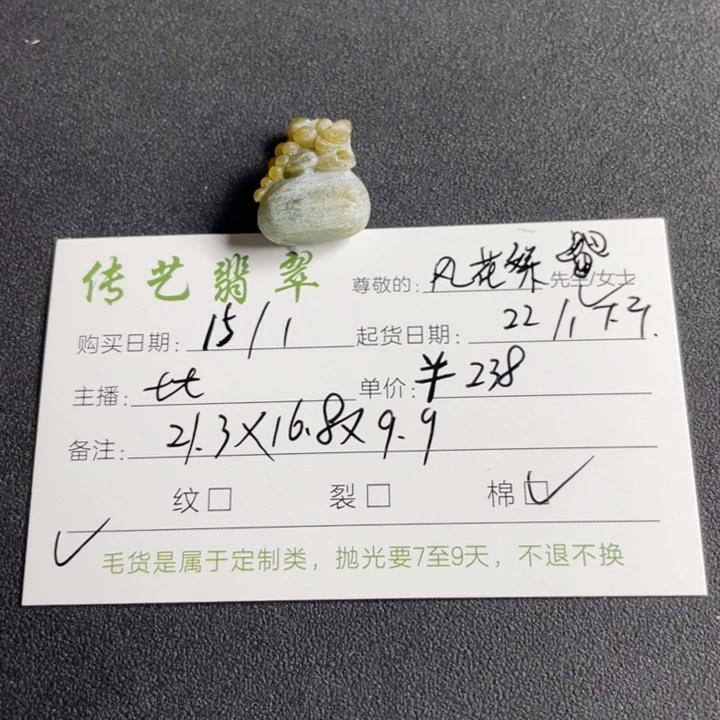 传艺翡翠 尊敬的: 凡花 先生/女士
购买日期: 15/1 起货日期: 22/1
主播: 单价: ¥238
备注: 21.3×16.8×9.9
纹□ 裂□ 棉□✓
✓ 毛货是属于定制类，抛光要7至9天，不退不换